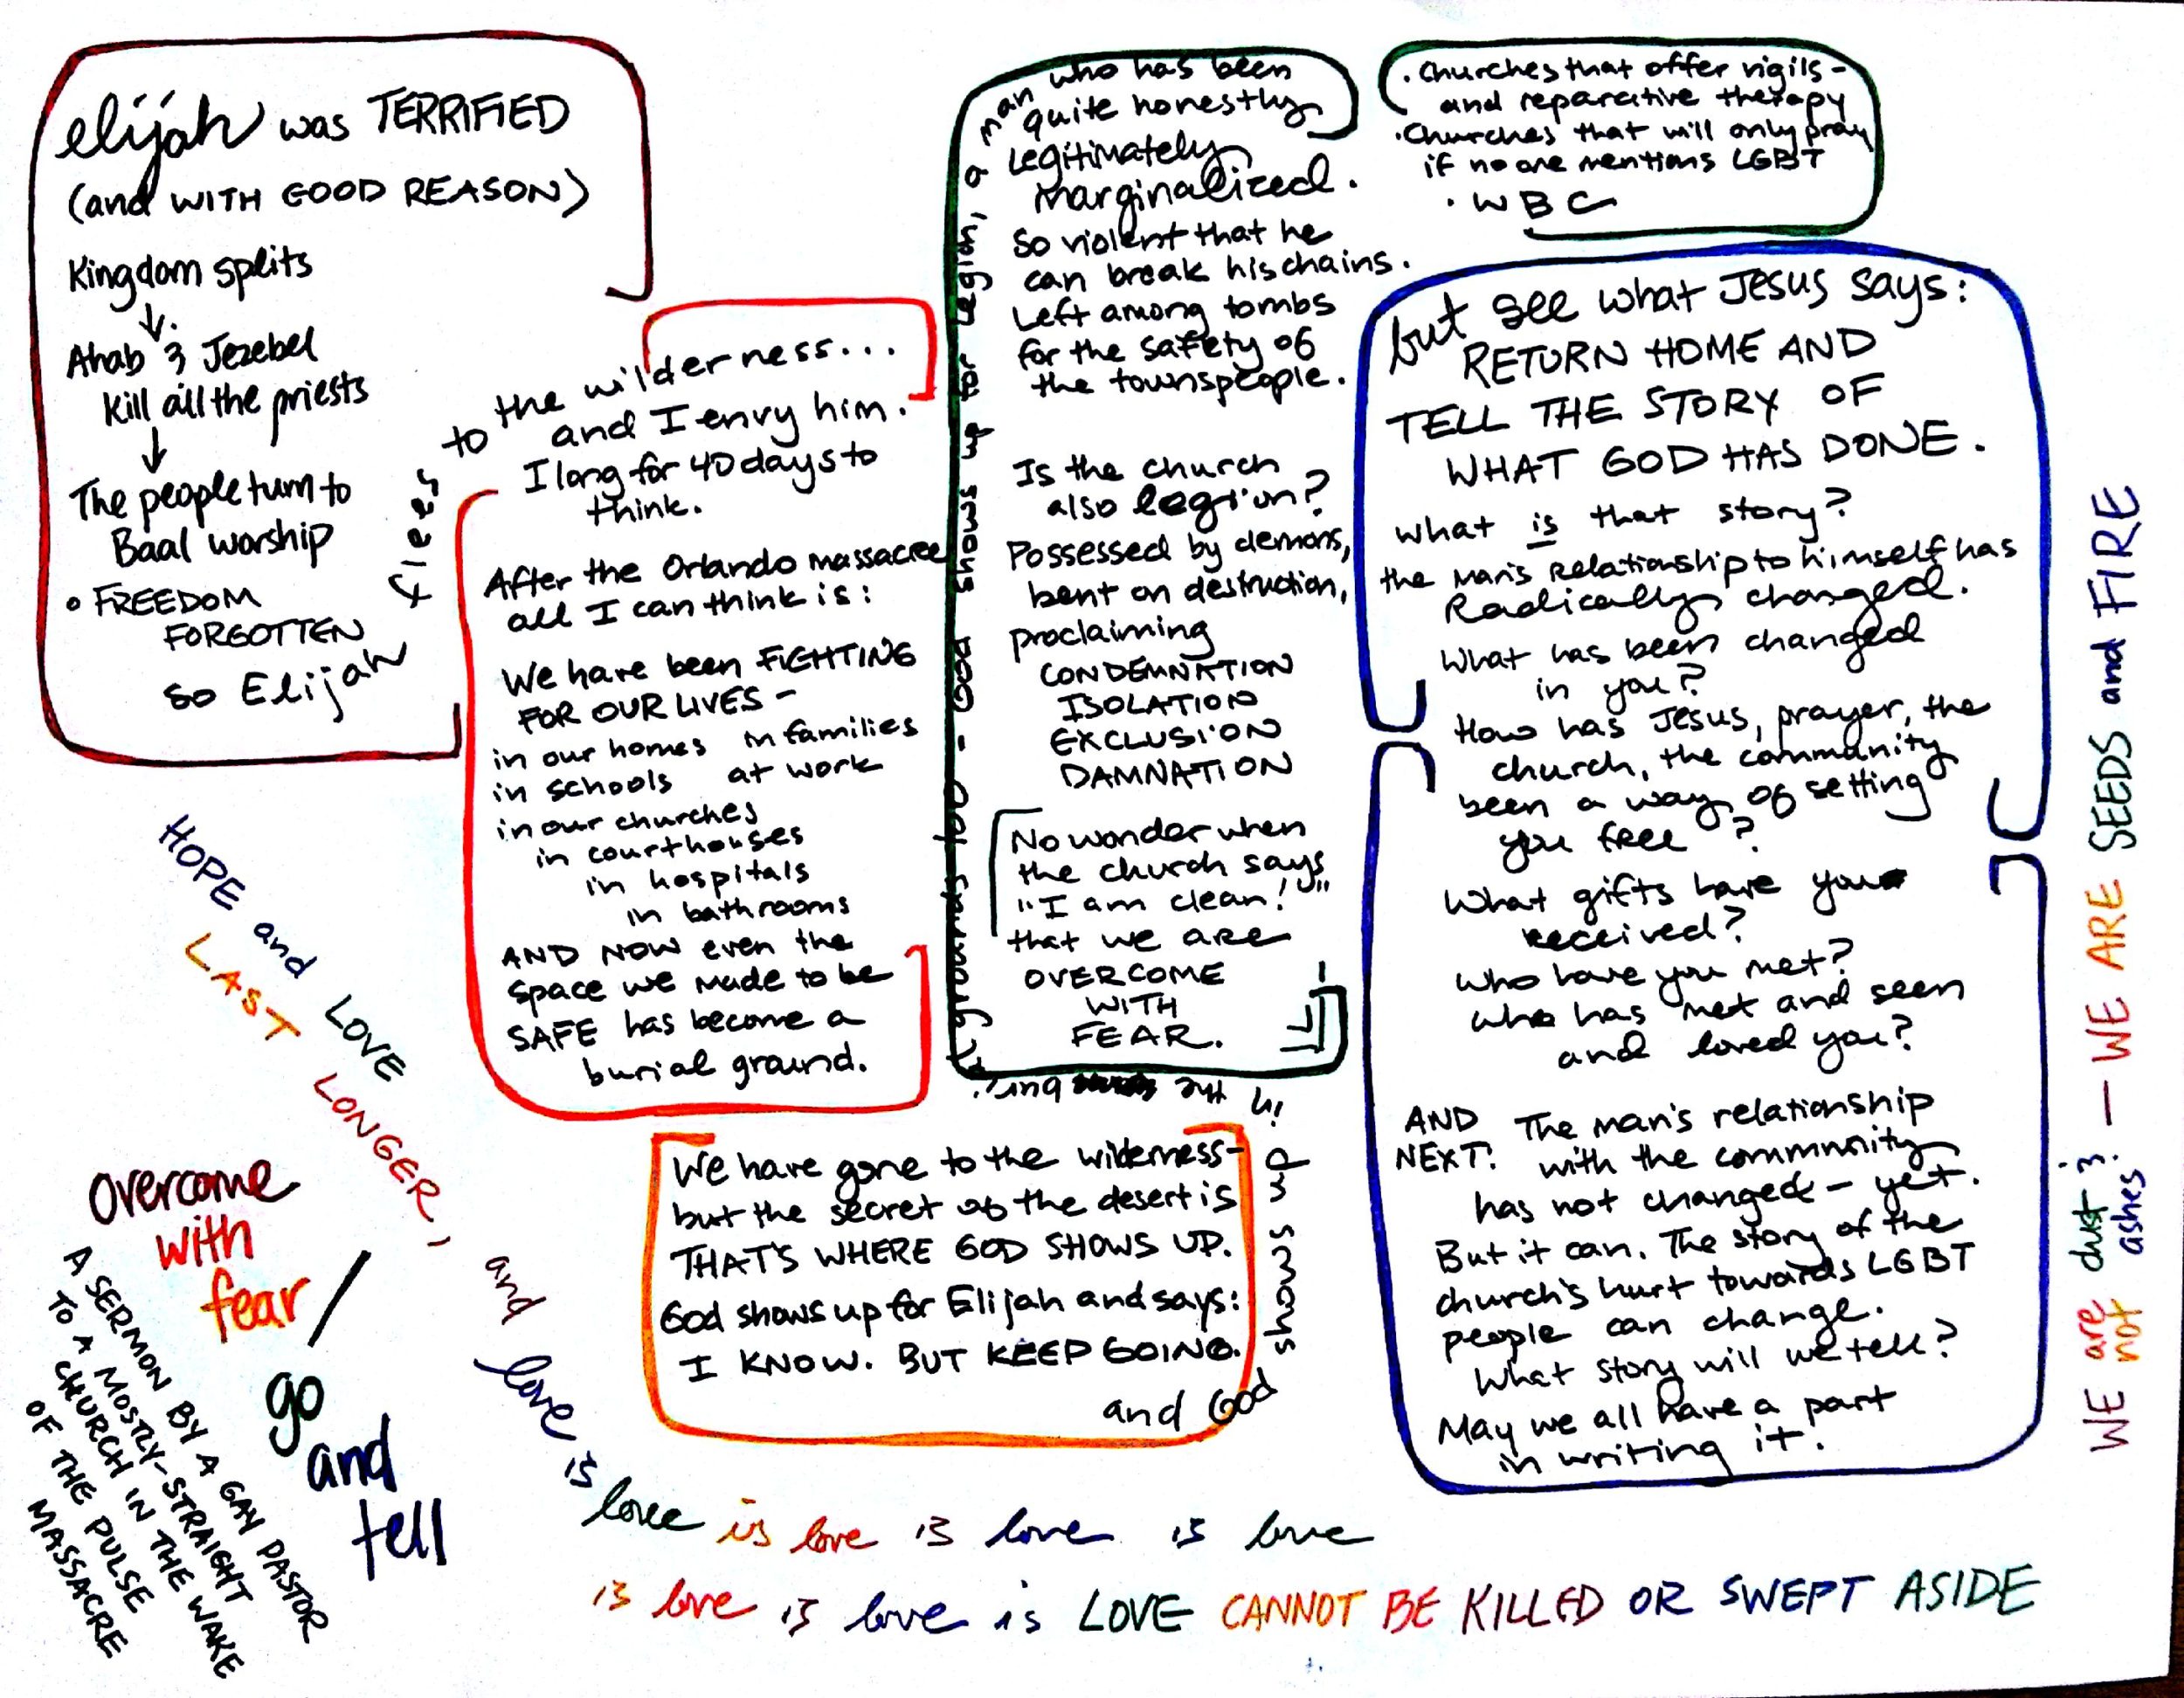 elijah was TERRIFIED
(and WITH GOOD REASON)
Kingdom splits
↓
Ahab & Jezebel
kill all the priests
↓
The people turn to
Baal worship
• FREEDOM
FORGOTTEN
so Elijah flees to the wilderness...
and I envy him.
I long for 40 days to
think.
After the Orlando massacre
all I can think is:
We have been FIGHTING
FOR OUR LIVES -
in our homes in families
in schools at work
in our churches
in courthouses
in hospitals
in bathrooms
AND NOW even the
space we made to be
SAFE has become a
burial ground.
We have gone to the wilderness-
but the secret of the desert is
THAT'S WHERE GOD SHOWS UP.
God shows up for Elijah and says:
I KNOW. BUT KEEP GOING.
and God
shows up
in the burying
grounds too - God shows up for Legion, a man who has been
quite honestly
legitimately
marginalized.
So violent that he
can break his chains.
Left among tombs
for the safety of
the townspeople.
Is the church
also legion?
Possessed by demons,
bent on destruction,
proclaiming
CONDEMNATION
ISOLATION
EXCLUSION
DAMNATION
No wonder when
the church says
"I am clean!"
that we are
OVERCOME
WITH
FEAR.
• Churches that offer vigils-
and reparative therapy
• Churches that will only pray
if no one mentions LGBT
• WBC
but see what Jesus says:
RETURN HOME AND
TELL THE STORY OF
WHAT GOD HAS DONE.
What is that story?
the man's relationship to himself has
Radically changed.
What has been changed
in you?
How has Jesus, prayer, the
church, the community
been a way of setting
you free?
What gifts have you
received?
Who have you met?
who has met and seen
and loved you?
AND NEXT: The man's relationship
with the community
has not changed - yet.
But it can. The story of the
church's hurt towards LGBT
people can change.
What story will we tell?
May we all have a part
in writing it!
overcome
with
fear /
go
and
tell
A SERMON BY A GAY PASTOR
TO A MOSTLY-STRAIGHT
CHURCH IN THE WAKE
OF THE PULSE
MASSACRE
HOPE and LOVE
LAST LONGER,
and love is love is love is love is love
is love is love is LOVE CANNOT BE KILLED OR SWEPT ASIDE
WE are dust; not ashes: — WE ARE SEEDS and FIRE